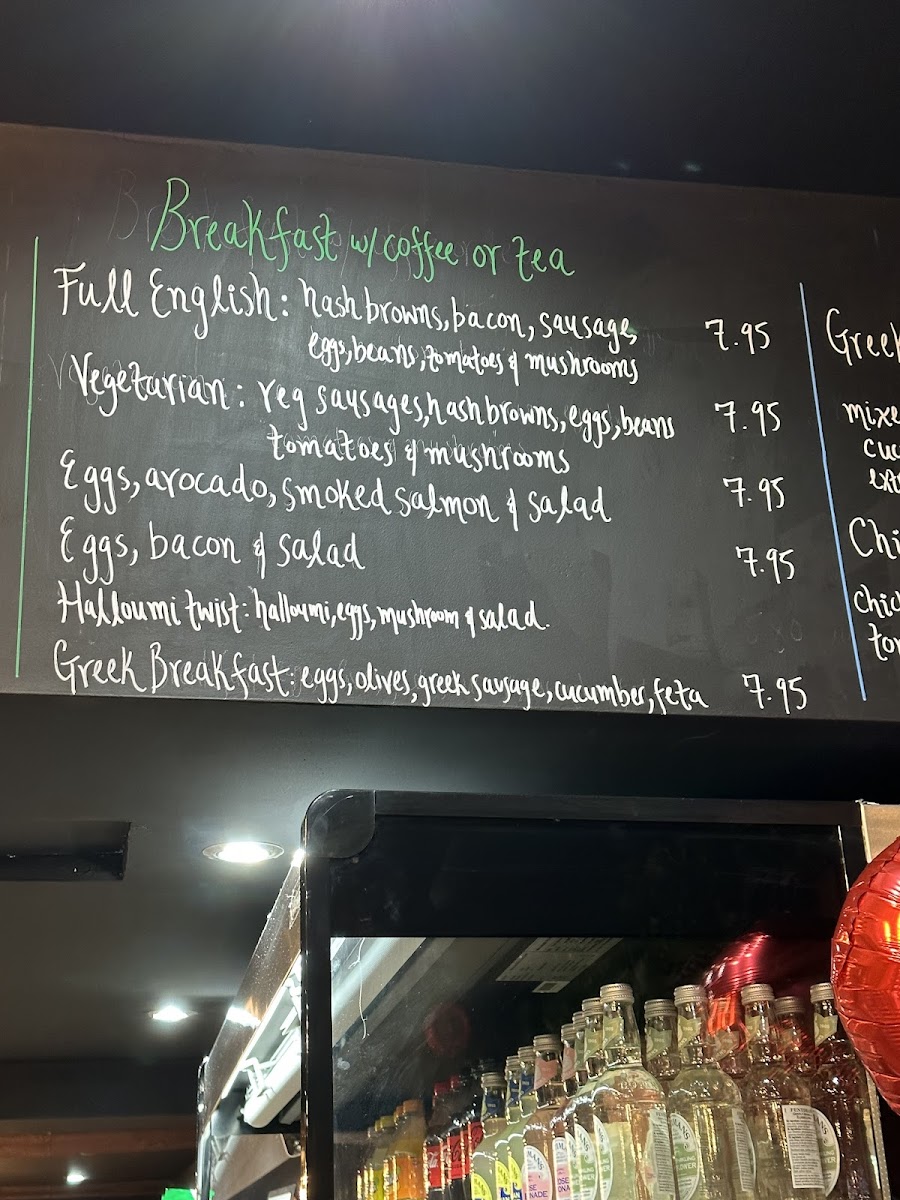 Breakfast w/ coffee or tea
Full English: hash browns, bacon, sausage,
eggs, beans, tomatoes & mushrooms
7.95
Vegetarian: veg sausages, hash browns, eggs, beans
tomatoes & mushrooms
7.95
Eggs, avocado, smoked salmon & salad
7.95
Eggs, bacon & salad
7.95
Halloumi twist: halloumi, eggs, mushroom & salad.
Greek Breakfast: eggs, olives, greek sausage, cucumber, feta
7.95
Greek
mixe
cuc
ext
Chi
chic
tom